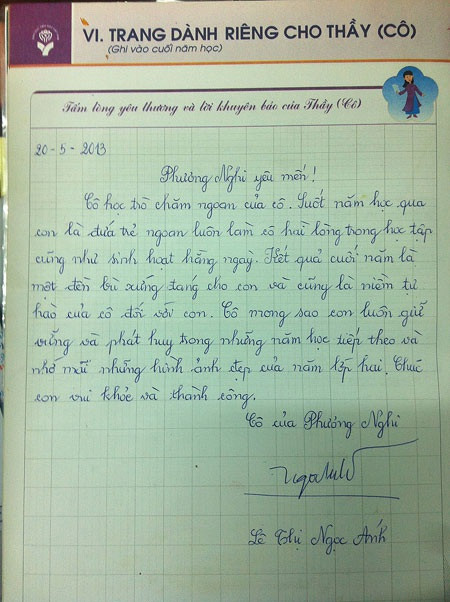 VI. TRANG DÀNH RIÊNG CHO THẦY (CÔ)
(Ghi vào cuối năm học)
Tấm lòng yêu thương và lời khuyên bảo của Thầy (Cô)
20-5-2013
Phương Nghi yêu mến!
Cô học trò chăm ngoan của cô. Suốt năm học qua
con là đứa trẻ ngoan luôn làm cô hài lòng trong học tập
cũng như sinh hoạt hằng ngày. Kết quả cuối năm là
một đền bù xứng đáng cho con và cũng là niềm tự
hào của cô đối với con. Cô mong sao con luôn giữ
vững và phát huy trong những năm học tiếp theo và
nhớ mãi những hình ảnh đẹp của năm lớp hai. Chúc
con vui khỏe và thành công.
Cô của Phương Nghi
Lê Thị Ngọc Ánh